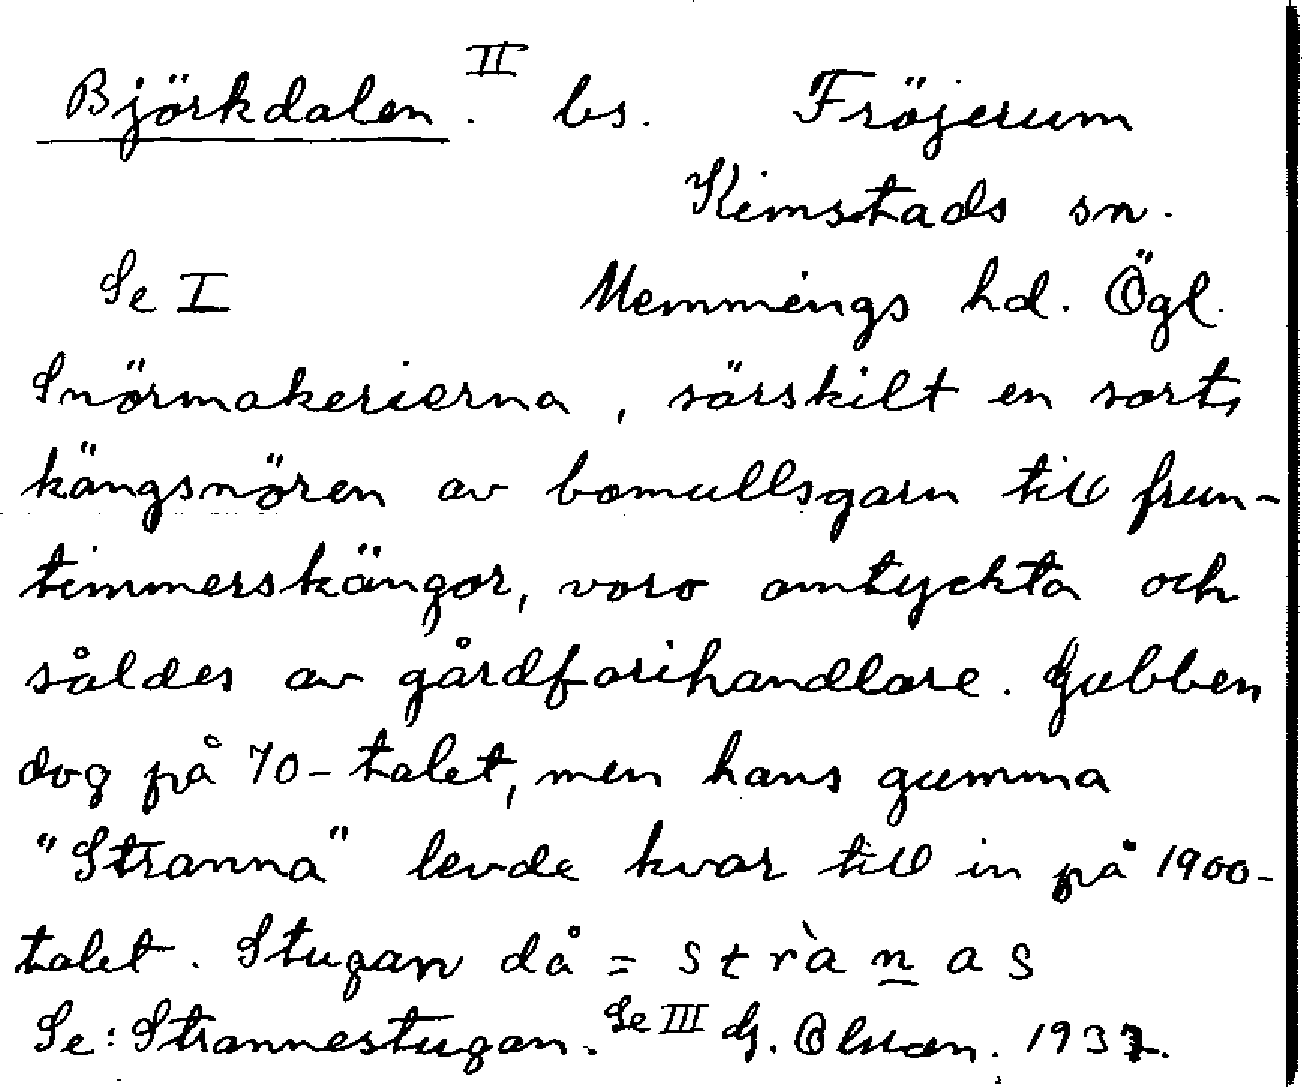 Björkdalen. II bs. Fröjerum
Kimstads sn.
Se I Memmings hd. Ögl.
Snörmakerierna, särskilt en sorts
kängsnören av bomullsgarn till frun-
timmerskängor, voro omtyckta och
såldes av gårdfarihandlare. Gubben
dog på 70-talet, men hans gumma
"Stranna" levde kvar till in på 1900-
talet. Stugan då = stràṉas
Se: Strannestugan. Se III G. Olsson. 1937.